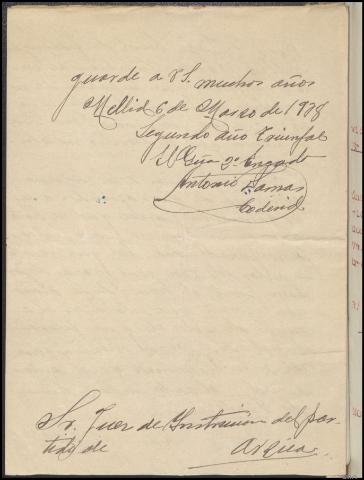 guarde a V.S. muchos años
Mellid 6 de Marzo de 1938
Segundo año Triunfal
El Guía 2º Encgado
Antonio Lamas
Sr. Juez de Instrucion del par-
tido de
Arzúa